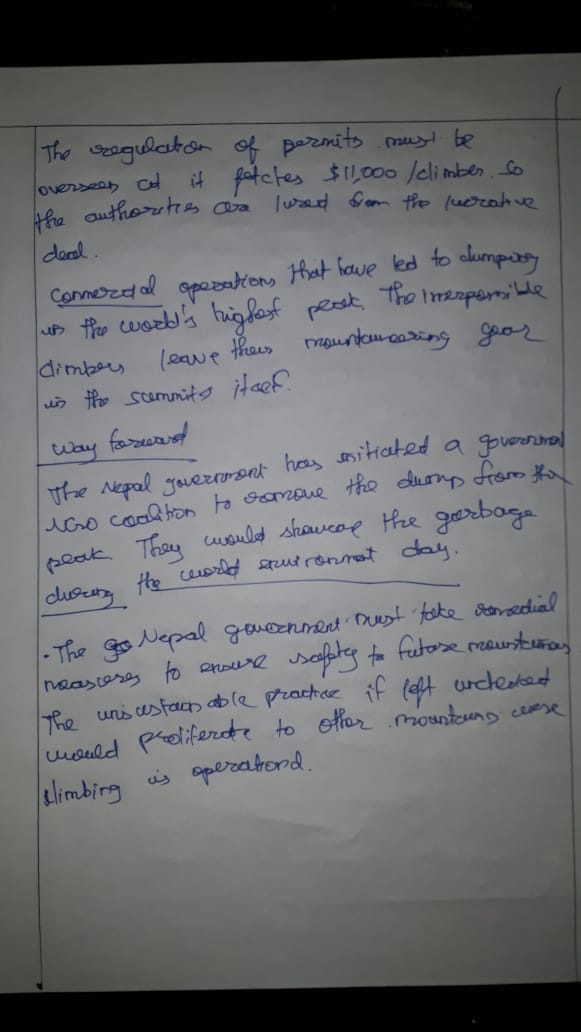 The regulation of permits must be
overseen as it fetches $11,000 /climber. So
the authorities are lured from the lucrative
deal.
Commercial operations that have led to dumping
in the world's highest peak. The Irresponsible
climbers leave their mountaineering gear
in the summits itself.
Way forward
The Nepal government has initiated a government
NGO coalition to remove the dump from the
peak. They would showcase the garbage
during the world environment day.
· The Nepal government must take remedial
measures to ensure safety to future mountaineers
The unsustainable practice if left unchecked
would proliferate to other mountains where
climbing is operational.